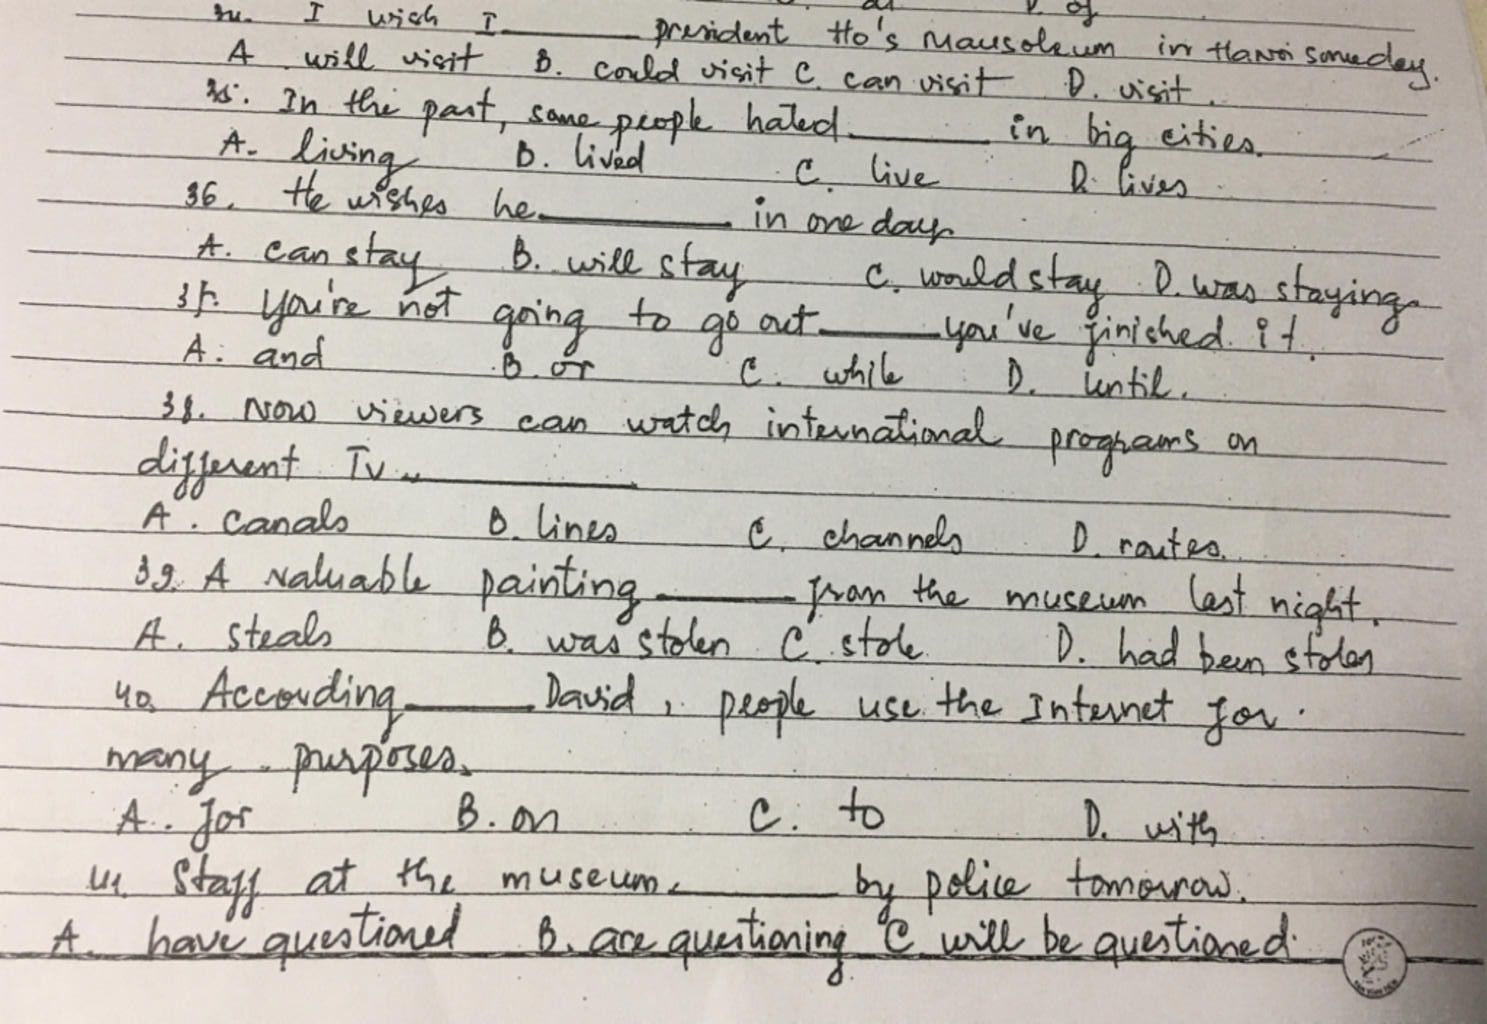 34. I wish I ______ president Ho's Mausoleum in Hanoi someday.
A. will visit B. could visit C. can visit D. visit.
35. In the past, some people hated ______ in big cities.
A. living B. lived C. live D. lives
36. He wishes he ______ in one day
A. can stay B. will stay C. would stay D. was staying
37. You're not going to go out ______ you've finished it.
A. and B. or C. while D. until.
38. Now viewers can watch international programs on
different TV ______
A. canals B. lines C. channels D. routes.
39. A valuable painting ______ from the museum last night.
A. steals B. was stolen C. stole D. had been stolen
40. According ______ David, people use the Internet for
many purposes.
A. for B. on C. to D. with
41. Staff at the museum ______ by police tomorrow.
A. have questioned B. are questioning C. will be questioned